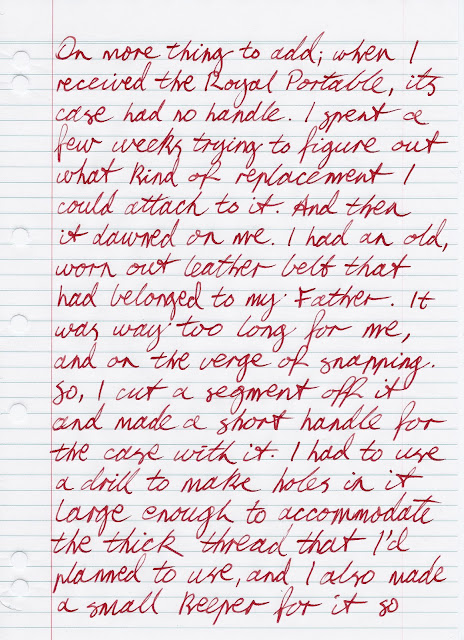 On more thing to add; when I
received the Royal Portable, its
case had no handle. I spent a
few weeks trying to figure out
what kind of replacement I
could attach to it. And then
it dawned on me. I had an old,
worn out leather belt that
had belonged to my Father. It
was way too long for me,
and on the verge of snapping.
So, I cut a segment off it
and made a short handle for
the case with it. I had to use
a drill to make holes in it
large enough to accommodate
the thick thread that I'd
planned to use, and I also made
a small keeper for it so